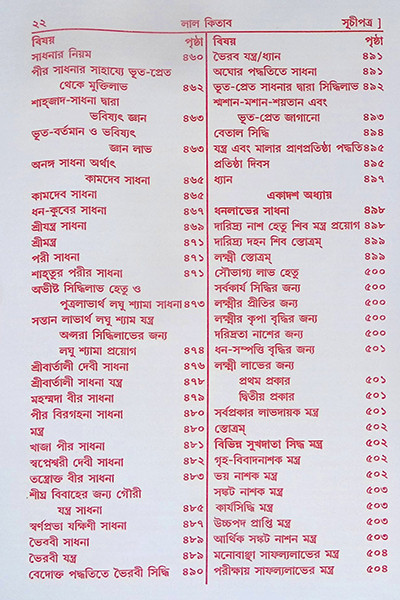 ২২ লাল কিতাব সূচীপত্র ]
বিষয় পৃষ্ঠা
সাধনার নিয়ম ৪৬০
পীর সাধনার সাহায্যে ভূত-প্রেত
থেকে মুক্তিলাভ ৪৬২
শাহ্‌জাদ-সাধনা দ্বারা
ভবিষ্যৎ জ্ঞান ৪৬৩
ভূত-বর্তমান ও ভবিষ্যৎ
জ্ঞান লাভ ৪৬৩
অনঙ্গ সাধনা অর্থাৎ
কামদেব সাধনা ৪৬৫
কামদেব সাধনা ৪৬৫
ধন-কুবের সাধনা ৪৬৭
শ্রীযন্ত্র সাধনা ৪৬৯
শ্রীমন্ত্র ৪৭১
পরী সাধনা ৪৭১
শাহ্‌তুর পরীর সাধনা ৪৭১
অভীষ্ট সিদ্ধিলাভ হেতু ও
পুত্রলাভার্থ লঘু শ্যামা সাধনা ৪৭৩
সন্তান লাভার্থ লঘু শ্যাম যন্ত্র
অপ্সরা সিদ্ধিলাভের জন্য
লঘু শ্যামা প্রয়োগ ৪৭৪
শ্রীবার্তালী দেবী সাধনা ৪৭৬
শ্রীবার্তালী সাধনা যন্ত্র ৪৭৮
মহম্মদা বীর সাধনা ৪৭৯
পীর বিরগহনা সাধনা ৪৮০
মন্ত্র ৪৮০
খাজা পীর সাধনা ৪৮১
স্বপ্নেশ্বরী দেবী সাধনা ৪৮২
তন্ত্রোক্ত বীর সাধনা ৪৮৩
শীঘ্র বিবাহের জন্য গৌরী
যন্ত্র সাধনা ৪৮৫
স্বর্ণপ্রভা যক্ষিণী সাধনা ৪৮৭
ভৈরবী সাধনা ৪৮৯
ভৈরবী যন্ত্র ৪৮৯
বেদোক্ত পদ্ধতিতে ভৈরবী সিদ্ধি ৪৯০
বিষয় পৃষ্ঠা
ভৈরব যন্ত্র/ধ্যান ৪৯১
অঘোর পদ্ধতিতে সাধনা ৪৯১
ভূত-প্রেত সাধনার দ্বারা সিদ্ধিলাভ ৪৯২
শ্মশান-মশান-শয়তান এবং
ভূত-প্রেত জাগানো ৪৯৩
বেতাল সিদ্ধি ৪৯৪
যন্ত্র এবং মালার প্রাণপ্রতিষ্ঠা পদ্ধতি ৪৯৫
প্রতিষ্ঠা দিবস ৪৯৫
ধ্যান ৪৯৭
একাদশ অধ্যায়
ধনলাভের সাধনা ৪৯৮
দারিদ্র্য নাশ হেতু শিব মন্ত্র প্রয়োগ ৪৯৮
দারিদ্র্য দহন শিব স্তোত্রম্ ৪৯৯
লক্ষ্মী স্তোত্রম্ ৪৯৯
সৌভাগ্য লাভ হেতু ৫০০
সর্বকার্য সিদ্ধির জন্য ৫০০
লক্ষ্মীর প্রীতির জন্য ৫০০
লক্ষ্মীর কৃপা বৃদ্ধির জন্য ৫০০
দরিদ্রতা নাশের জন্য ৫০০
ধন-সম্পত্তি বৃদ্ধির জন্য ৫০১
লক্ষ্মী লাভের জন্য
প্রথম প্রকার ৫০১
দ্বিতীয় প্রকার ৫০১
সর্বপ্রকার লাভদায়ক মন্ত্র ৫০১
স্তোত্রম্ ৫০২
বিভিন্ন সুখদাতা সিদ্ধ মন্ত্র ৫০২
গৃহ-বিবাদনাশক মন্ত্র ৫০২
ভয় নাশক মন্ত্র ৫০২
সঙ্কট নাশক মন্ত্র ৫০৩
কার্যসিদ্ধি মন্ত্র ৫০৩
উচ্চপদ প্রাপ্তি মন্ত্র ৫০৩
আর্থিক সঙ্কট নাশন মন্ত্র ৫০৩
মনোবাঞ্ছা সাফল্যলাভের মন্ত্র ৫০৪
পরীক্ষায় সাফল্যলাভের মন্ত্র ৫০৪